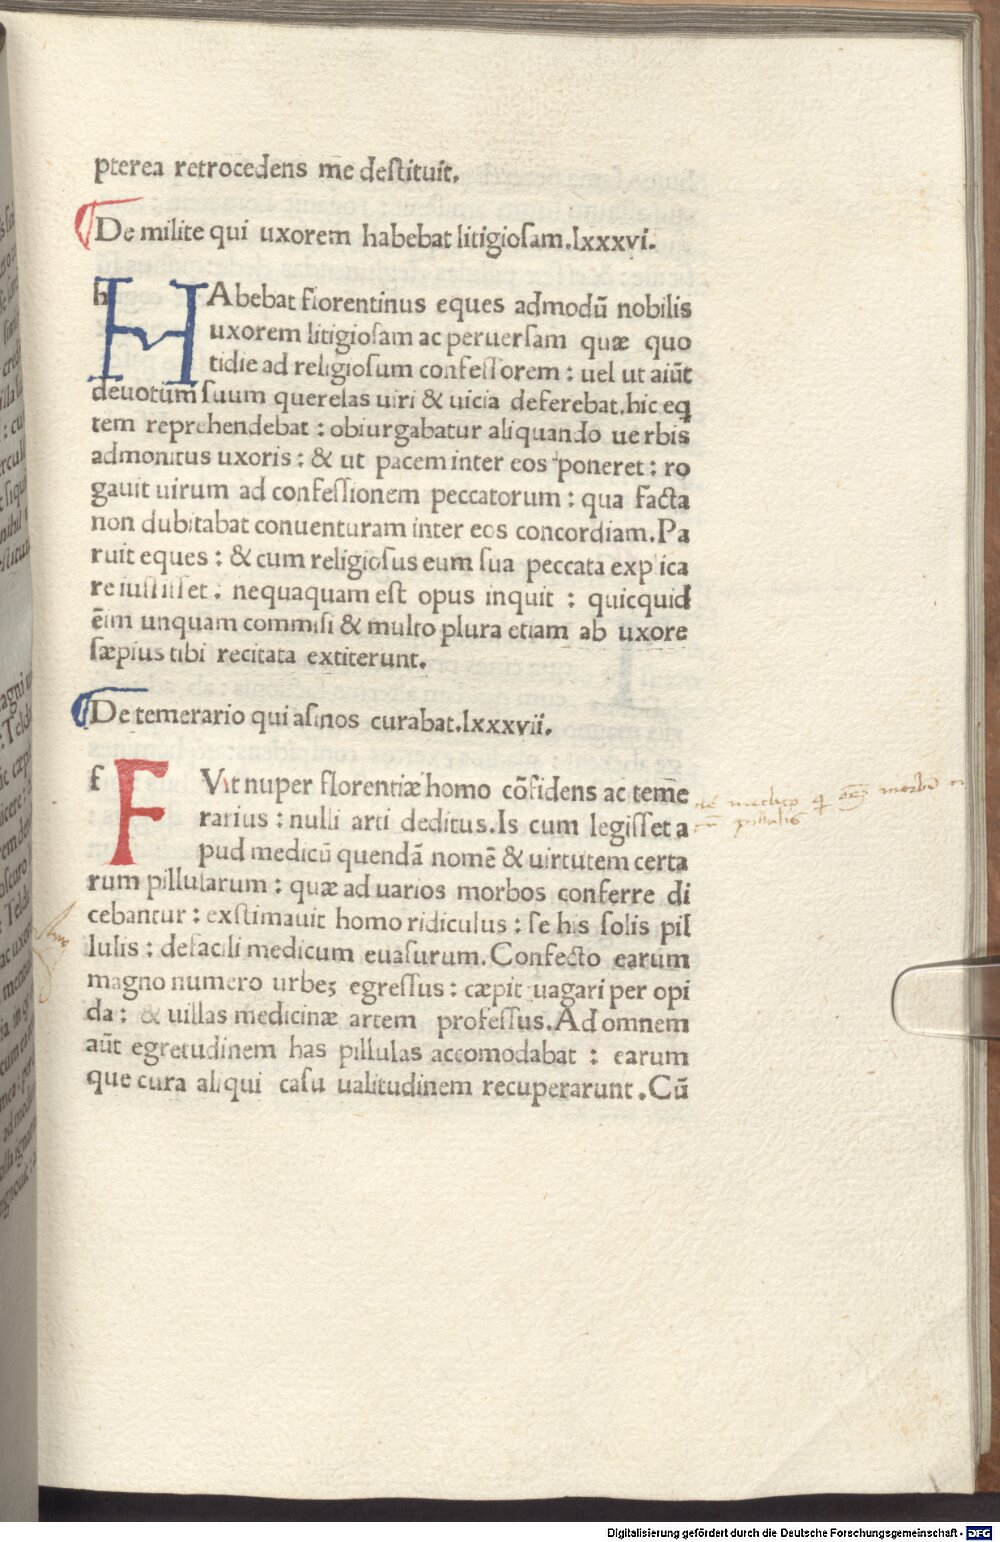 pterea retrocedens me destituit.
De milite qui uxorem habebat litigiosam.lxxxvi.
HAbebat florentinus eques admodū nobilis
uxorem litigiosam ac peruersam quæ quo
tidie ad religiosum confessorem : uel ut aiūt
deuotum suum querelas uiri & uicia deferebat.hic eq
tem reprehendebat : obiurgabatur aliquando uerbis
admonitus uxoris : & ut pacem inter eos poneret : ro
gauit uirum ad confessionem peccatorum : qua facta
non dubitabat conuenturam inter eos concordiam.Pa
ruit eques : & cum religiosus eum sua peccata explica
re iussisset : nequaquam est opus inquit : quicquid
ēim unquam commisi & multo plura etiam ab uxore
sæpius tibi recitata extiterunt.
De temerario qui asinos curabat.lxxxvii.
FVit nuper florentiæ homo cōfidens ac teme
rarius : nulli arti deditus.Is cum legisset a
pud medicū quendā nomē & uirtutem certa
rum pillularum : quæ ad uarios morbos conferre di
cebantur : exstimauit homo ridiculus : se his solis pil
lulis : defacili medicum euasurum.Confecto earum
magno numero urbeꝫ egressus : cæpit uagari per opi
da : & uillas medicinæ artem professus.Ad omnem
aūt egretudinem has pillulas accomodabat : earum
que cura aliqui casu ualitudinem recuperarunt.Cū
Digitalisierung gefördert durch die Deutsche Forschungsgemeinschaft - DFG